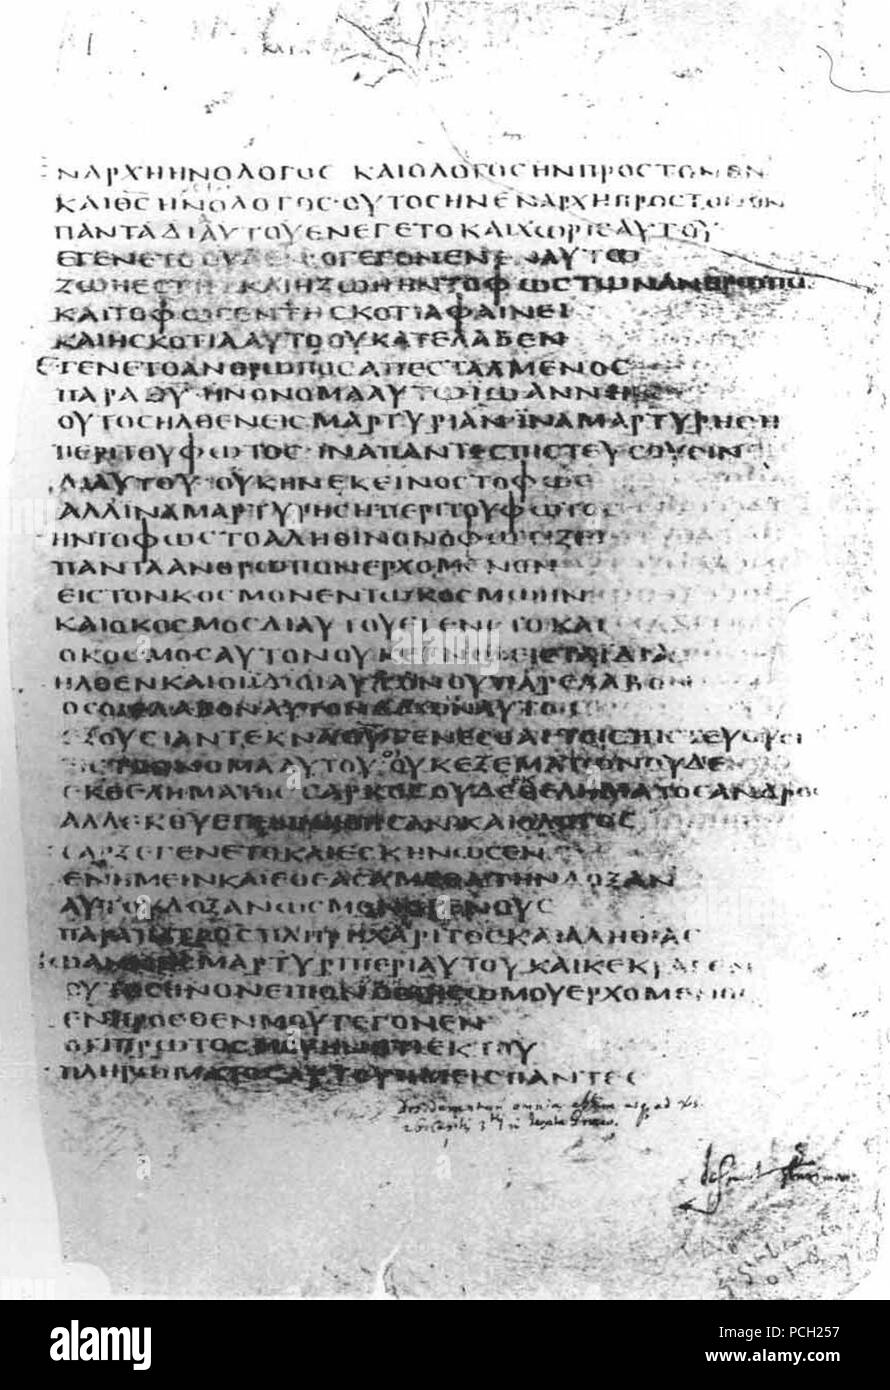 ΕΝΑΡΧΗΗΝΟΛΟΓΟΣ ΚΑΙΟΛΟΓΟΣΗΝΠΡΟΣΤΟΝΘΝ
ΚΑΙΘΣΗΝΟΛΟΓΟΣ·ΟΥΤΟΣΗΝΕΝΑΡΧΗΠΡΟΣΤΟΝΘΝ
ΠΑΝΤΑΔΙΑΥΤΟΥΕΝΕΓΕΤΟΚΑΙΧΩΡΙΣΑΥΤΟΥ
ΕΓΕΝΕΤΟΟΥΔΕΝ·ΟΓΕΓΟΝΕΝΕΝΑΥΤΩ
ΖΩΗΕΣΤΙΝ ΚΑΙΗΖΩΗΗΝΤΟΦΩΣΤΩΝΑΝΘΡΩΠΩ
ΚΑΙΤΟΦΩΣΕΝΤΗΣΚΟΤΙΑΦΑΙΝΕΙ
ΚΑΙΗΣΚΟΤΙΑΑΥΤΟΟΥΚΑΤΕΛΑΒΕΝ
ΕΓΕΝΕΤΟΑΝΘΡΩΠΟΣΑΠΕΣΤΑΛΜΕΝΟΣ
ΠΑΡΑΘΥ·ΗΝΟΝΟΜΑΑΥΤΩΙΩΑΝΝΗΝ
ΟΥΤΟΣΗΛΘΕΝΕΙΣΜΑΡΤΥΡΙΑΝ·ΙΝΑΜΑΡΤΥΡΗΣΗ
ΠΕΡΙΤΟΥΦΩΤΟΣ·ΙΝΑΠΑΝΤΕΣΠΙΣΤΕΥΣΟΥΣΙΝ
ΔΙΑΥΤΟΥ·ΟΥΚΗΝΕΚΕΙΝΟΣΤΟΦΩΣ
ΑΛΛΙΝΑΜΑΡΤΥΡΗΣΗΠΕΡΙΤΟΥΦΩΤΟΣ
ΗΝΤΟΦΩΣΤΟΑΛΗΘΙΝΟΝΟΦΩΤΙΖΕΙ
ΠΑΝΤΑΑΝΘΡΩΠΟΝΕΡΧΟΜΕΝΟΝ
ΕΙΣΤΟΝΚΟΣΜΟΝΕΝΤΩΚΟΣΜΩΗΝ
ΚΑΙΟΚΟΣΜΟΣΔΙΑΥΤΟΥΕΓΕΝΕΤΟΚΑΙ
ΟΚΟΣΜΟΣΑΥΤΟΝΟΥΚΕΓΝΩΕΙΣΤΑΙΔΙΑ
ΗΛΘΕΝΚΑΙΟΙΙΔΙΟΙΑΥΤΟΝΟΥΠΑΡΕΛΑΒΟΝ
ΟΣΟΙΕΛΑΒΟΝΑΥΤΟΝΕΔΩΚΕΝΑΥΤΟΙΣ
ΕΞΟΥΣΙΑΝΤΕΚΝΑΘΥΓΕΝΕΣΘΑΙΤΟΙΣΠΙΣΤΕΥΟΥΣΙ
ΕΙΣΤΟΟΝΟΜΑΑΥΤΟΥ·ΟΙΟΥΚΕΞΕΜΑΤΩΝΟΥΔΕ
ΕΚΘΕΛΗΜΑΤΟΣΣΑΡΚΟΣΟΥΔΕΕΚΘΕΛΗΜΑΤΟΣΑΝΔΡΟΣ
ΑΛΛΕΚΘΥΕΓΕΝΝΗΘΗΣΑΝΚΑΙΟΛΟΓΟΣ
ΣΑΡΞΕΓΕΝΕΤΟΚΑΙΕΣΚΗΝΩΣΕΝ
ΕΝΗΜΕΙΝΚΑΙΕΘΕΑΣΑΜΕΘΑΤΗΝΔΟΞΑΝ
ΑΥΤΟΥΔΟΞΑΝΩΣΜΟΝΟΓΕΝΟΥΣ
ΠΑΡΑΠΑΤΡΟΣΠΛΗΡΗΧΑΡΙΤΟΣΚΑΙΑΛΗΘΙΑΣ
ΙΩΑΝΝΗΣΜΑΡΤΥΡΙΠΕΡΙΑΥΤΟΥ.ΚΑΙΚΕΚΡΑΓΕΝ
ΟΥΤΟΣΗΝΟΝΕΙΠΟΝΟΟΠΙΣΩΜΟΥΕΡΧΟΜΕΝΟΣ
ΕΝΠΡΟΣΘΕΝΜΟΥΓΕΓΟΝΕΝ
ΟΤΙΠΡΩΤΟΣΜΟΥΗΝΟΤΙΕΚΤΟΥ
ΠΛΗΡΩΜΑΤΟΣΑΥΤΟΥΗΜΕΙΣΠΑΝΤΕΣ
alamy
Image ID: PCH257
www.alamy.com